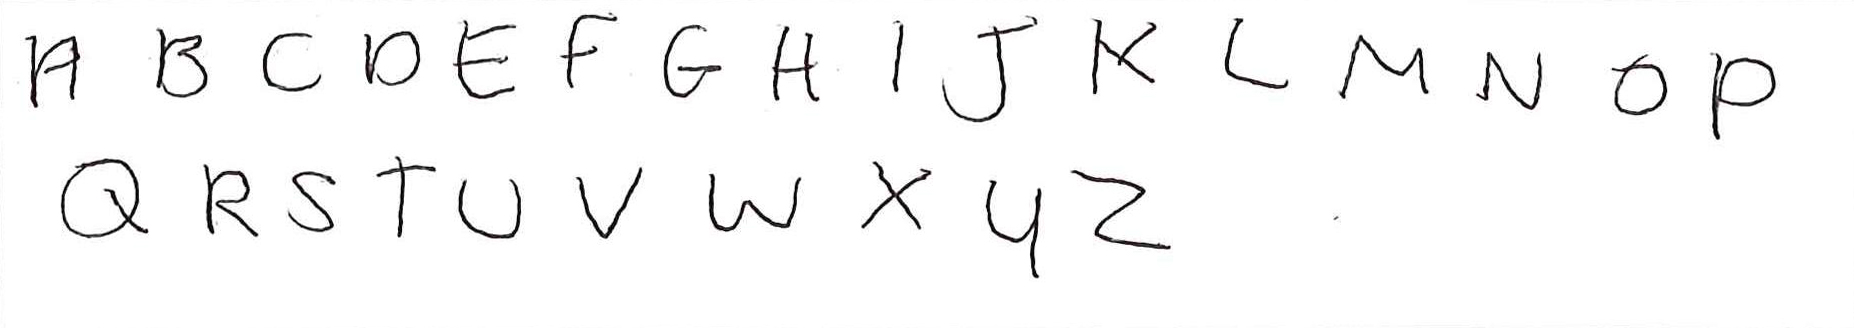 A B C D E F G H I J K L M N O P
Q R S T U V W X Y Z